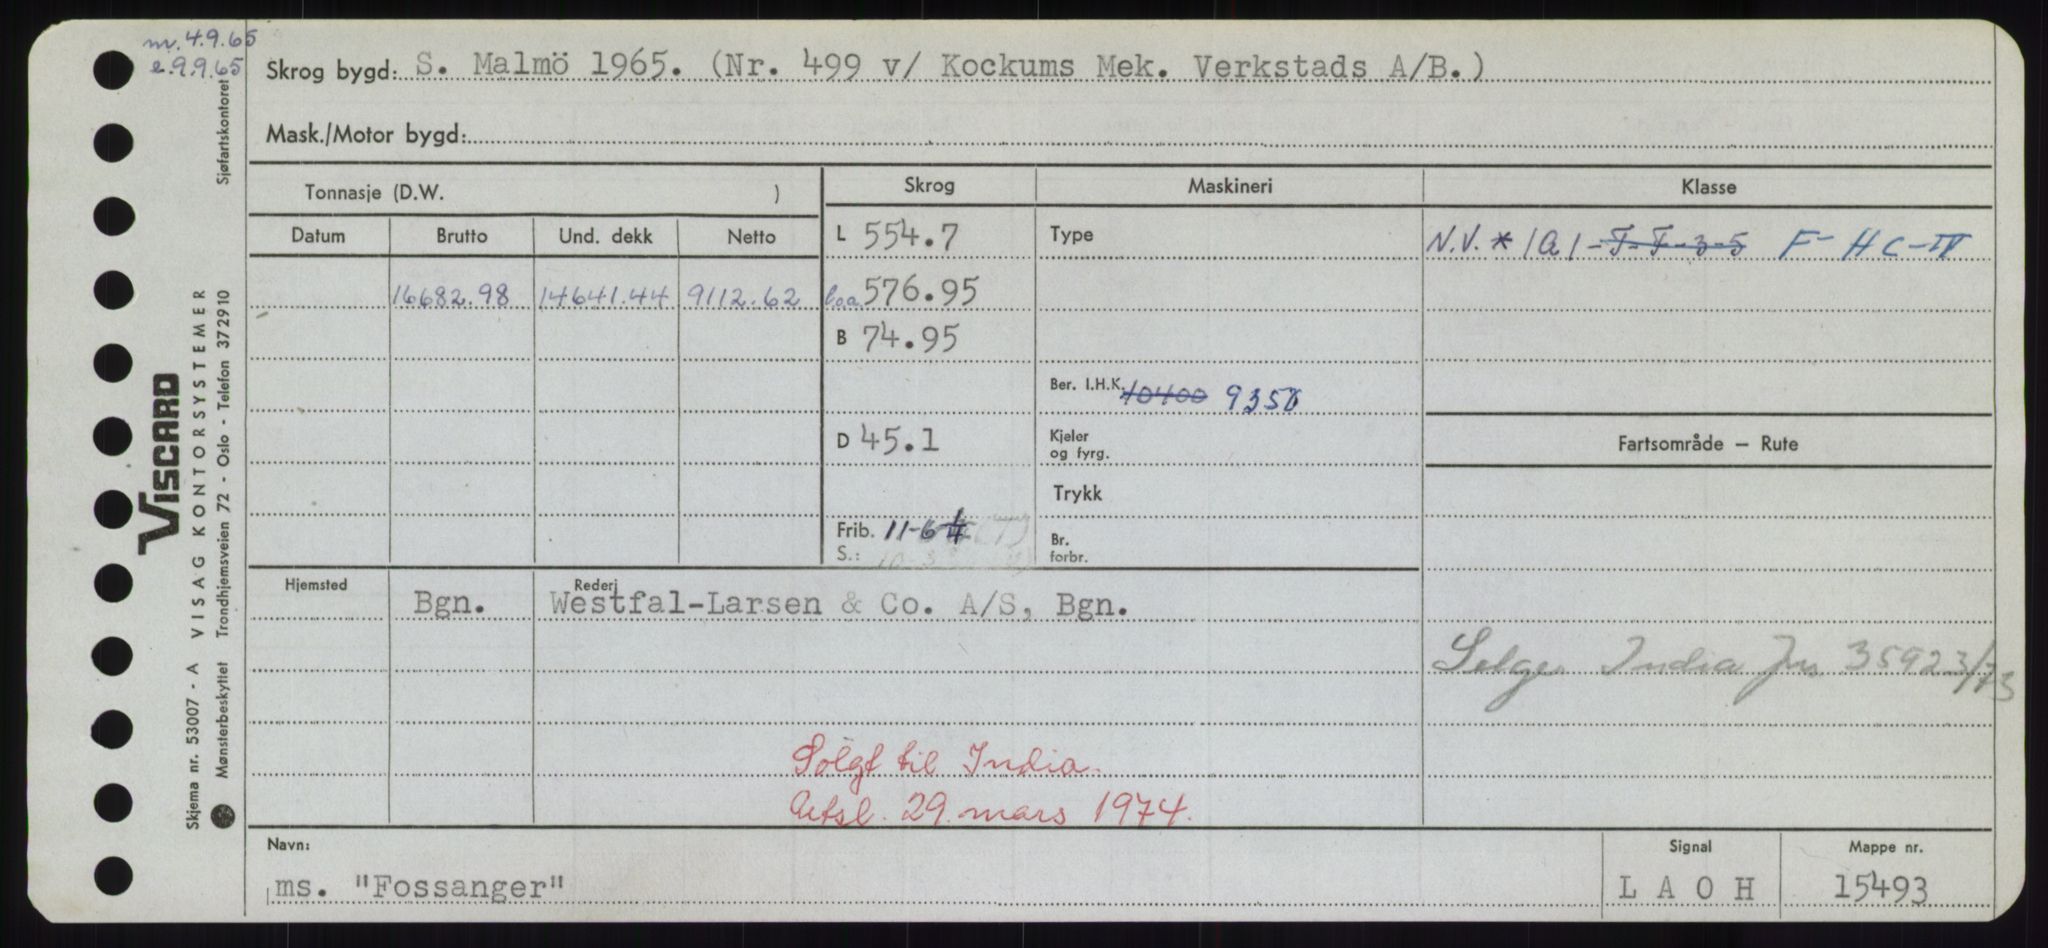 m. 4.9.65
e. 9.9.65
Skrog bygd: S. Malmö 1965. (Nr. 499 v/ Kockums Mek. Verkstads A/B.)
Mask./Motor bygd:
Tonnasje (D.W. )
Skrog
Maskineri
Klasse
Datum
Brutto
Und. dekk
Netto
L 554.7
Type
N.V. * 1A1 - F-F-3-5 F-HC-IV
16682.98 14641.44 9112.62
l.o.a. 576.95
B 74.95
Ber. I.H.K. 10400 9350
D 45.1
Kjeler
og fyrg.
Fartsområde – Rute
Trykk
Frib. 11-6
S.:
Br.
forbr.
Hjemsted
Rederi
Bgn. Westfal-Larsen & Co. A/S, Bgn.
Selges India Jnr 35923/73
Solgt til India.
Utsl. 29. mars 1974.
Navn:
ms. "Fossanger"
Signal
L A O H
Mappe nr.
15493
VISCARD
Skjema nr. 53007 - A VISAG KONTORSYSTEMER
Mønsterbeskyttet Trondhjemsveien 72 - Oslo - Telefon 372910
Sjøfartskontoret